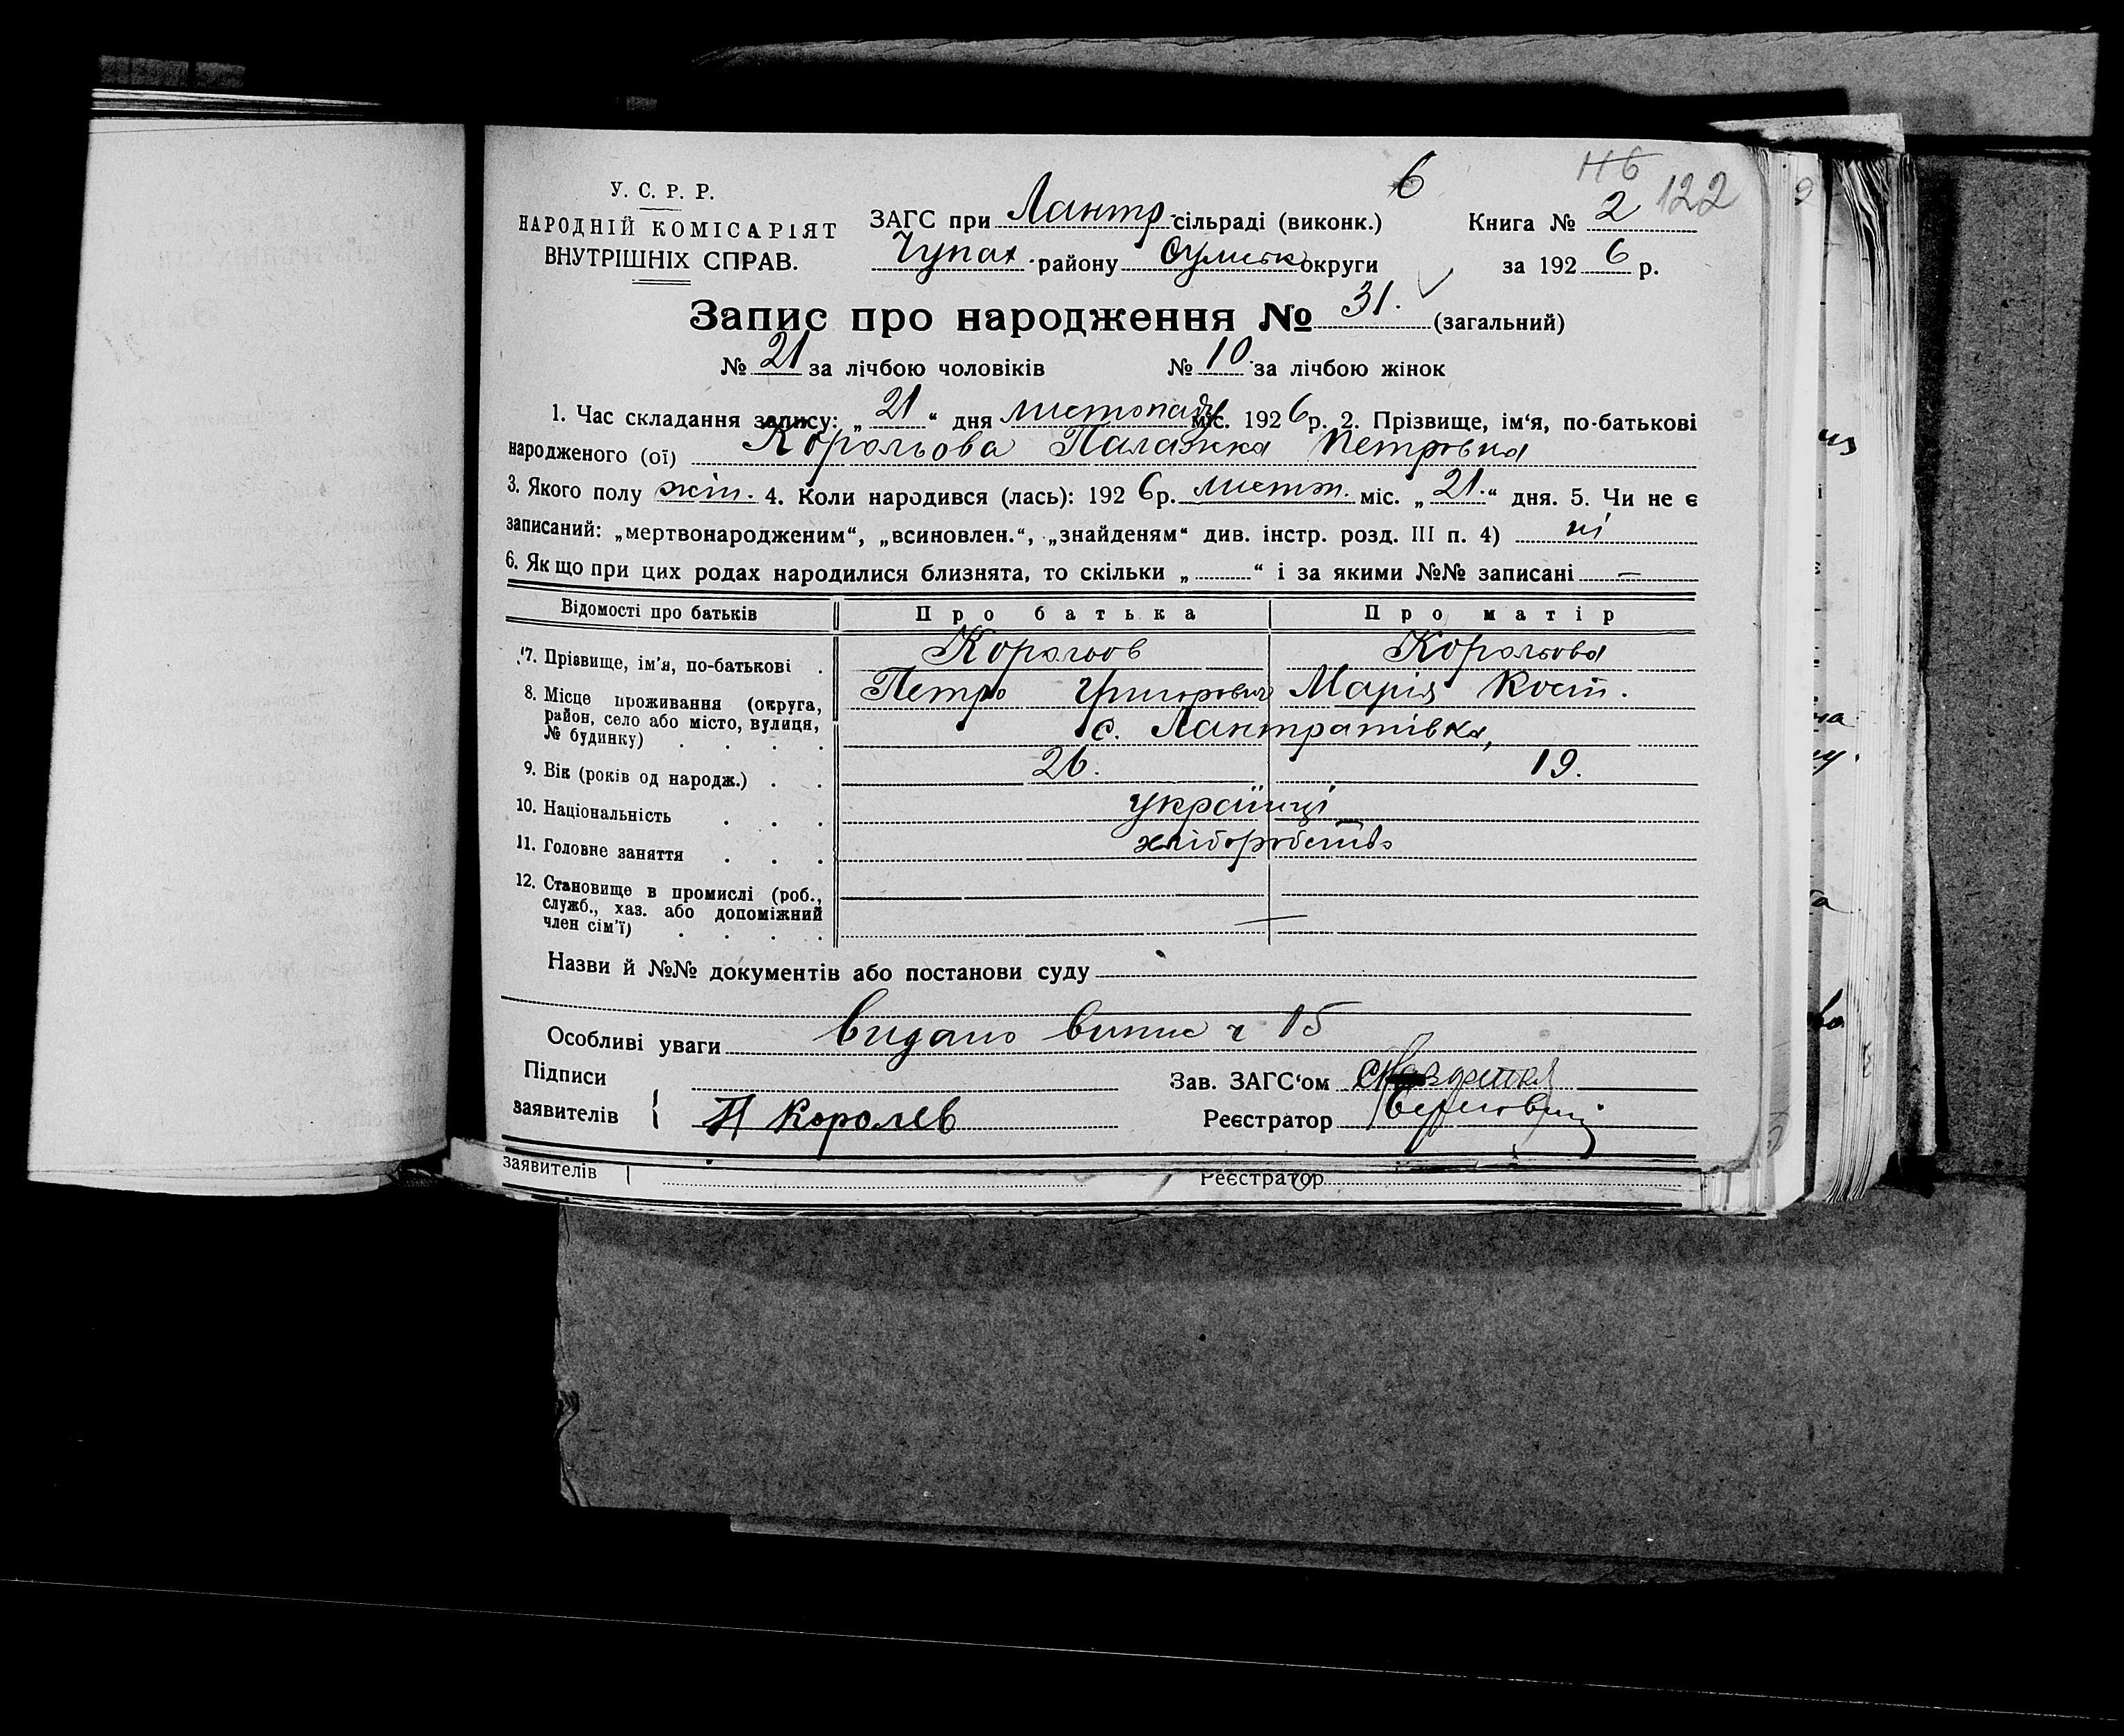 6
116 122
У. С. Р. Р.
НАРОДНІЙ КОМІСАРІЯТ
ВНУТРІШНІХ СПРАВ.
ЗАГС при Лантр. сільраді (виконк.)
Чупах. району Сумськ округи
Книга № 2
за 192 6 р.
Запис про народження № 31. (загальний)
№ 21 за лічбою чоловіків № 10. за лічбою жінок
1. Час складання запису: „ 21 “ дня листопаду міс. 192 6 р. 2. Прізвище, ім'я, по-батькові
народженого (ої) Корольова Палажка Петровна
3. Якого полу жін. 4. Коли народився (лась): 192 6 р. листп. міс. „ 21. “ дня. 5. Чи не є
записаний: „мертвонародженим“, „всиновлен.“, „знайденям“ див. інстр. розд. III п. 4) ні
6. Як що при цих родах народилися близнята, то скільки „ “ і за якими №№ записані —
Відомості про батьків Про батька Про матір
7. Прізвище, ім'я, по-батькові . Корольов Корольова
Петро Григорович Марія Кост.
8. Місце проживання (округа,
район, село або місто, вулиця,
№ будинку) . . . . с. Лантратівка,
9. Вік (років од народж.) . . 26. 19.
10. Національність . . . українці
11. Головне заняття . . . хліборобство
12. Становище в промислі (роб.,
служб., хаз. або допоміжний
член сім'ї) . . . . —
Назви й №№ документів або постанови суду
Особливі уваги видано випис ч 15
Підписи
заявителів { П Королев
Зав. ЗАГС‘ом
Реєстратор
заявителів Реєстратор